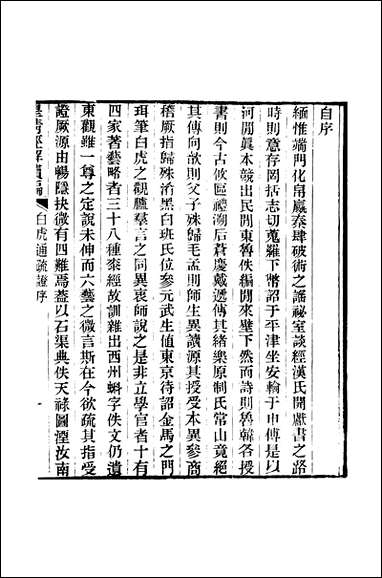 自序
緬惟端門化帛嬴秦肆破術之謠祕室談經漢氏開獻書之路
時則意存罔括志切蒐羅下幣詔于平津坐安輪于申傅是以
河閒眞本競出民閒東魯佚編聞來壁下然而詩則魯韓各授
書則今古攸區禮溯后蒼慶戴遞傳其緒樂原制氏常山竟絕
其傳向歆則父子殊歸毛孟則師生異讀源其授受本異參商
稽厥指歸殊淆黑白班氏位參元武生値東京待詔金馬之門
珥筆白虎之觀臚羣言之同異衷師說之是非立學官者十有
四家著藝略者三十八種桼經故訓雜出西州蝌字佚文仍遺
東觀雖一尊之定說未伸而六藝之微言斯在今欲疏其指受
證厥源由暢隱抉微有四難焉蓋以石渠典佚天祿圖湮汝南
皇清經解續編
白虎通疏證序